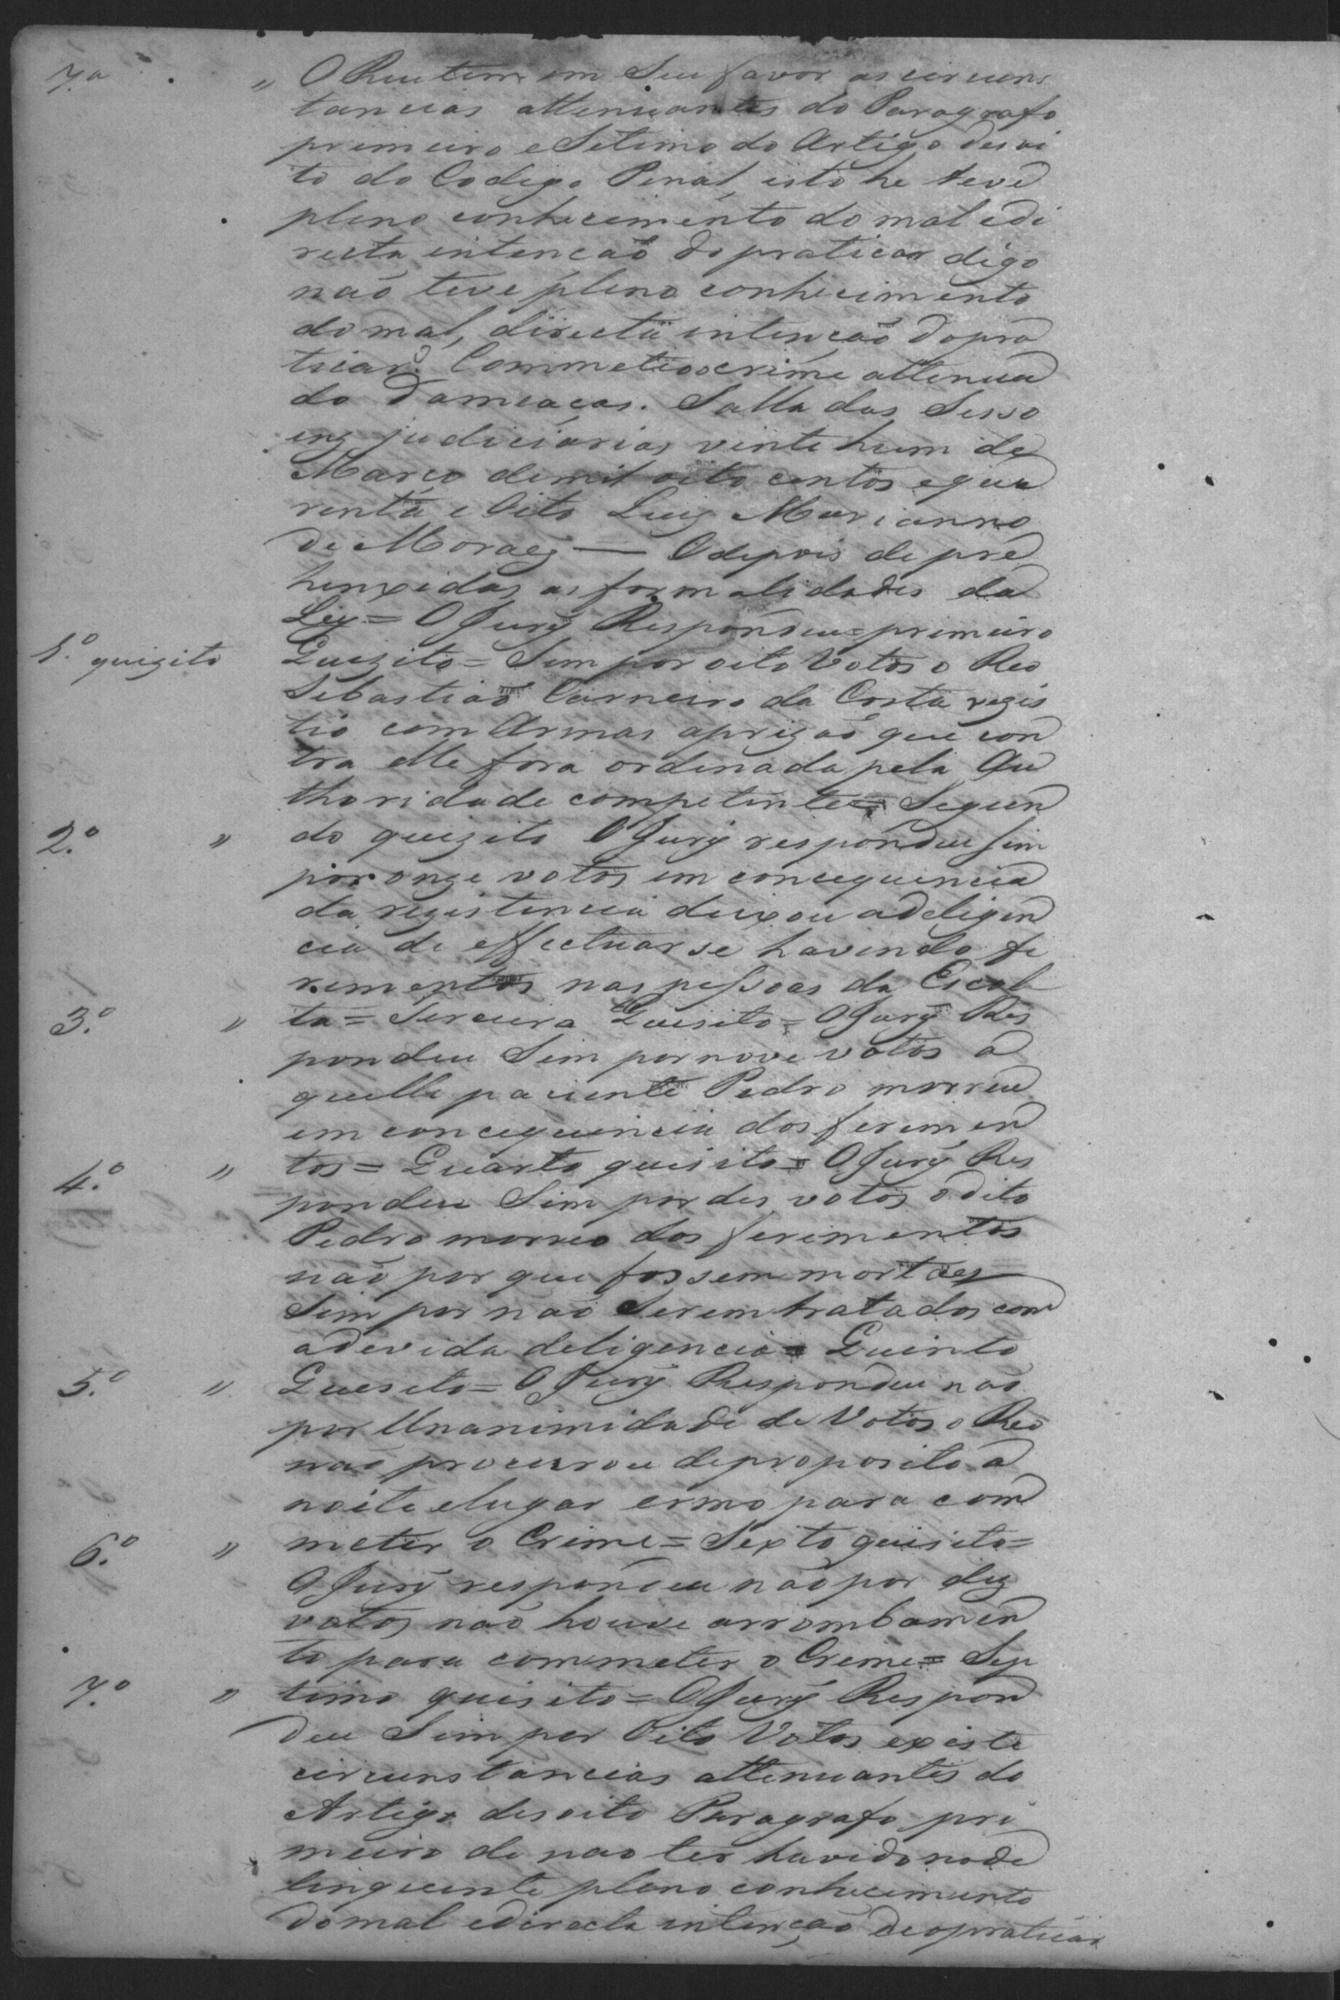 7.ª " O Reu tem em Seu favor as circuns
tancias attenuantes do Paragrafo
primeiro e Setimo do Artigo desoi
to do Codigo Penal, isto he teve
pleno conhecimento do mal e di
recta intencaõ do praticar digo
naõ teve pleno conhecimento
do mal, directa intençaõ do pra
ticar. Commetio o crime attenua
do d'ameaças. Salla das Sesso
ens judiciarias vinte hum de
Março de mil oito centos e qua
renta e Oito Luiz Marianno
de Moraes — O depois de pre
henxidas as formalidades da
Ley = O Jury Respondeu = primeiro
1.º quizito Quizito = Sim por oito Votos o Reo
Sebastiaõ Carneiro da Costa rezis
tio com Armas aprizaõ que con
tra elle fora ordenada pela Au
thoridade competente = Segun
2.º " do quizito O Jury respondeu sim
por onze votos em concequencia
da rezistencia deixou a deligen
cia de effectuar se havendo fe
rimentos nas pessoas da Escol
3.º " ta = Terceira Quisito = O Jury Res
pondeu Sim por nove votos a
quelle paciente Pedro morreu
em concequencia dos ferimen
4.º " tos = Quarto quisito = O Jury Res
pondeu Sim por des votos o dito
Pedro morreo dos ferimentos
naõ por que fossem mortaes
Sim por naõ Serem tratados com
a devida deligencia = Quinto
5.º " Quesito = O Jury Respondeu naõ
por Unanimidade de Votos o Reo
naõ procurou de proposito a
noite e lugar ermo para com
6.º " meter o Crime = Sexto quisito =
O Jury respondeu naõ por dez
votos naõ houve arrombamen
to para commeter o Crime = Sep
7.º " timo quisito = O Jury Respon
deu Sim por Oito Votos existe
circunstancias attenuantes do
Artigo desoito Paragrafo pri
meiro de nao ter havido no de
linquente pleno conhecimento
do mal e directa intençaõ de o praticar